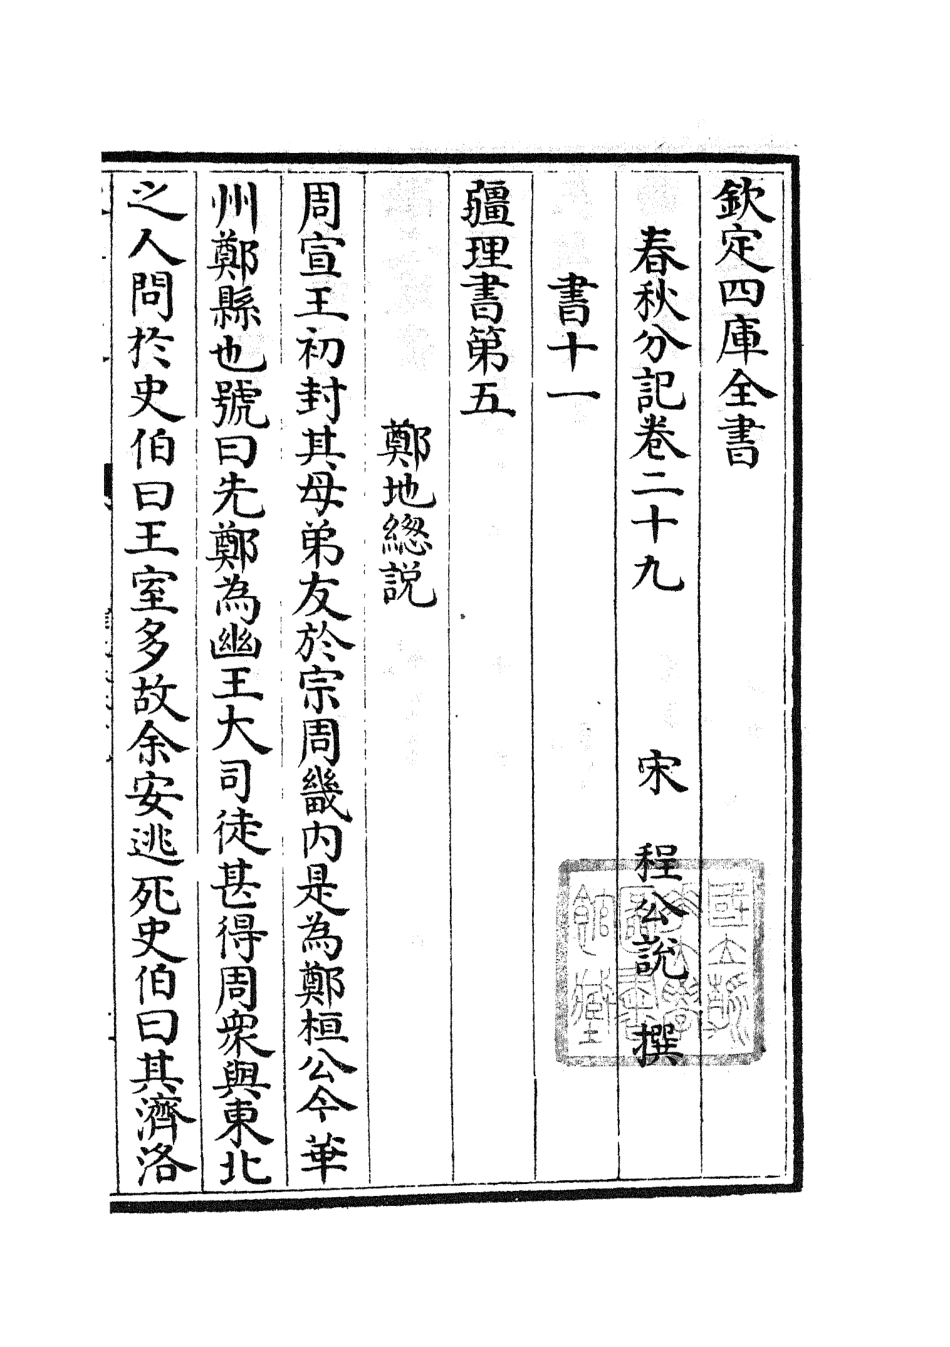 欽定四庫全書
春秋分記卷二十九
宋 程公說 撰
書十一
疆理書第五
鄭地緫説
周宣王初封其母弟友於宗周畿内是為鄭桓公今華
州鄭縣也號曰先鄭為幽王大司徒甚得周衆與東北
之人問於史伯曰王室多故余安逃死史伯曰其濟洛